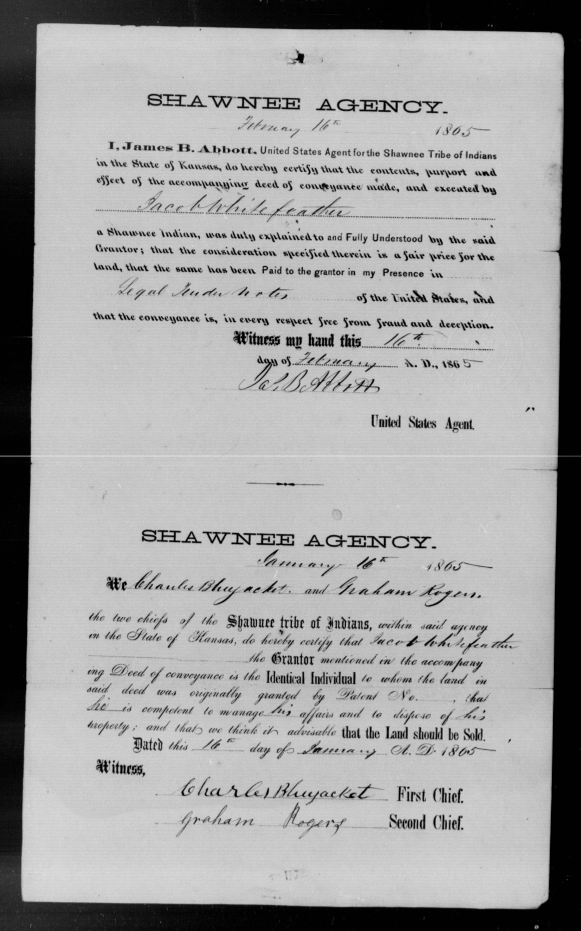 SHAWNEE AGENCY.
February 16th 1865
I, James B. Abbott, United States Agent for the Shawnee Tribe of Indians
in the State of Kansas, do hereby certify that the contents, purport and
effect of the accompanying deed of conveyance made, and executed by
Jacob Whitefeather
a Shawnee Indian, was duly explained to and Fully Understood by the said
Grantor; that the consideration specified therein is a fair price for the
land, that the same has been Paid to the grantor in my Presence in
Legal Tender Notes of the United States, and
that the conveyance is, in every respect free from fraud and deception.
Witness my hand this 16th
day of February A. D., 1865
Jas. B. Abbott
United States Agent.
SHAWNEE AGENCY.
January 16th 1865
We Charles Bluejacket. and Graham Rogers.
the two chiefs of the Shawnee tribe of Indians, within said agency
in the State of Kansas, do hereby certify that Jacob Whitefeather
the Grantor mentioned in the accompany
ing Deed of conveyance is the Identical Individual to whom the land in
said deed was originally granted by Patent No. , that
he is competent to manage his affairs and to dispose of his
property; and that we think it advisable that the Land should be Sold.
Dated this 16th day of January A. D. 1865
Witness,
Charles Bluejacket First Chief.
Graham Rogers Second Chief.